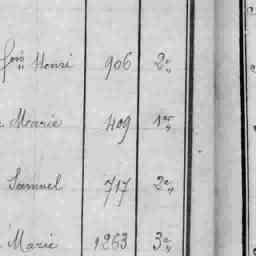 fois Henri 906 2e
Marie 409 1er
Samuel 717 2e
Marie 1263 3e